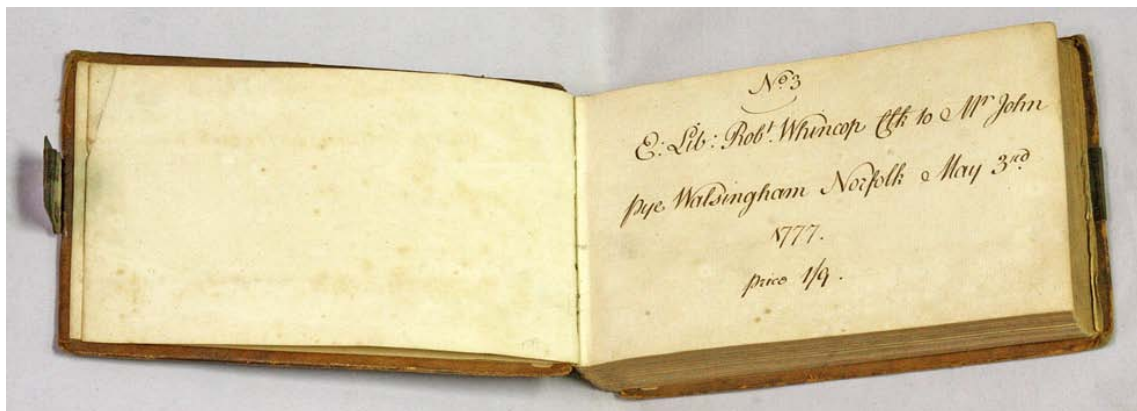 No. 3
E: Lib: Robt. Whincop Clk to Mr John
pye Walsingham Norfolk May 3rd
1777.
price 1/9.